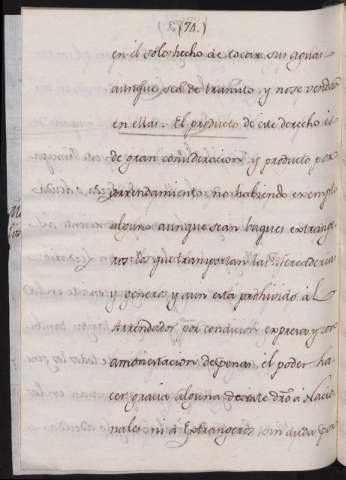 (78.)
en el solo hecho de tocar sus aguas
aunque sea de transito y no se vendan
en ellas. El producto de este derecho es
de gran consideracion y producto por
arrendamiento no habiendo exemplo
alguno aunque sean buques extrange
ros los que transportan las Mercaderias
y generos y aun esta prohivido al
Arrendador por condicion expresa y con
amonestacion de penas el poder ha
cer gracia alguna de este dro á Nacio
nales ni á Extrangeros, sin duda por